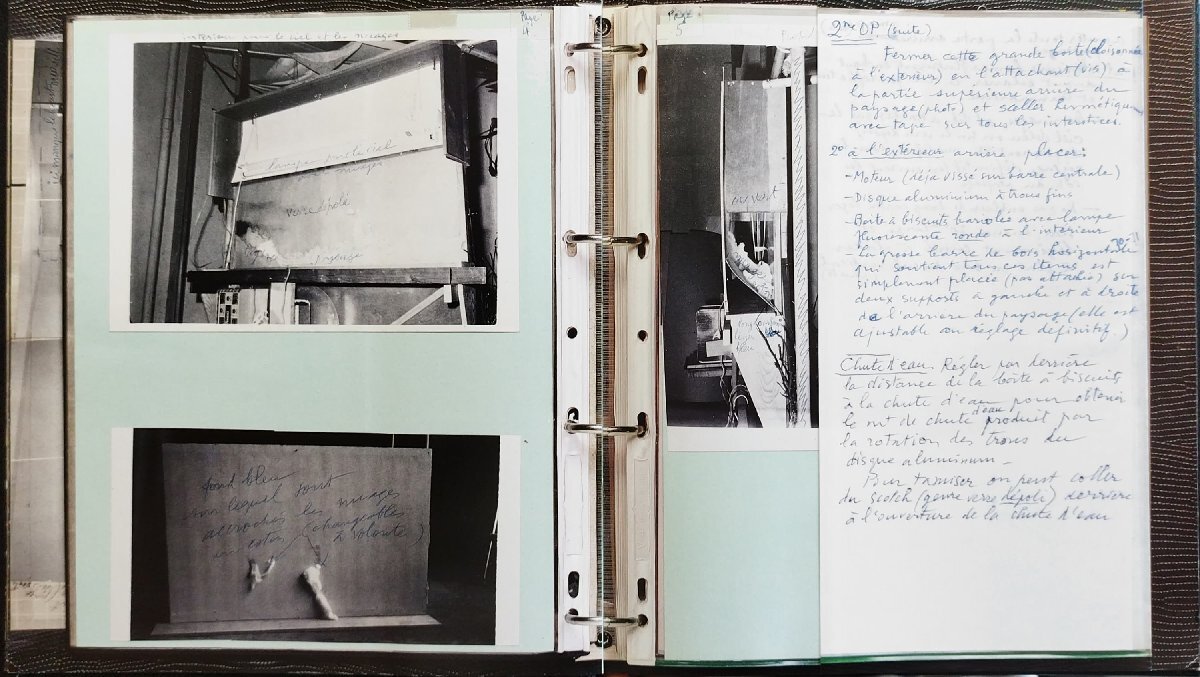 Page:
4
intérieur pour le ciel et les nuages
lampe pour le ciel
nuages
verre dépoli
paysage
fond bleu
sur lequel sont
accrochés les nuages
en coton (changeables
à volonté)
Page:
5
ouvert
bleu
2me OP. (suite.)
Fermer cette grande boite (cloisonnée
à l'extérieur) en l'attachant (vis) à
la partie supérieure arrière du
paysage (photo) et sceller hermétiquem
avec tape sur tous les interstices.
2º à l'extérieur arrière placer:
- Moteur (déja vissé sur barre centrale)
- Disque aluminium à trous fins
- Boite à biscuits bariolée avec lampe
fluorescente ronde à l'intérieur
- la grosse barre de bois horizontale
qui soutient tous ces items est
simplement placée (pas attachée) sur
deux supports à gauche et à droite
de l'arrière du paysage (elle est
ajustable au réglage définitif.)
Chute d'eau. Régler par derrière
la distance de la boite à biscuits
à la chute d'eau pour obtenir
le mt de chute d'eau produit par
la rotation des trous du
disque aluminum —
Pour tamiser on peut coller
du scotch (genre verre dépoli) derrière
à l'ouverture de la chute d'eau